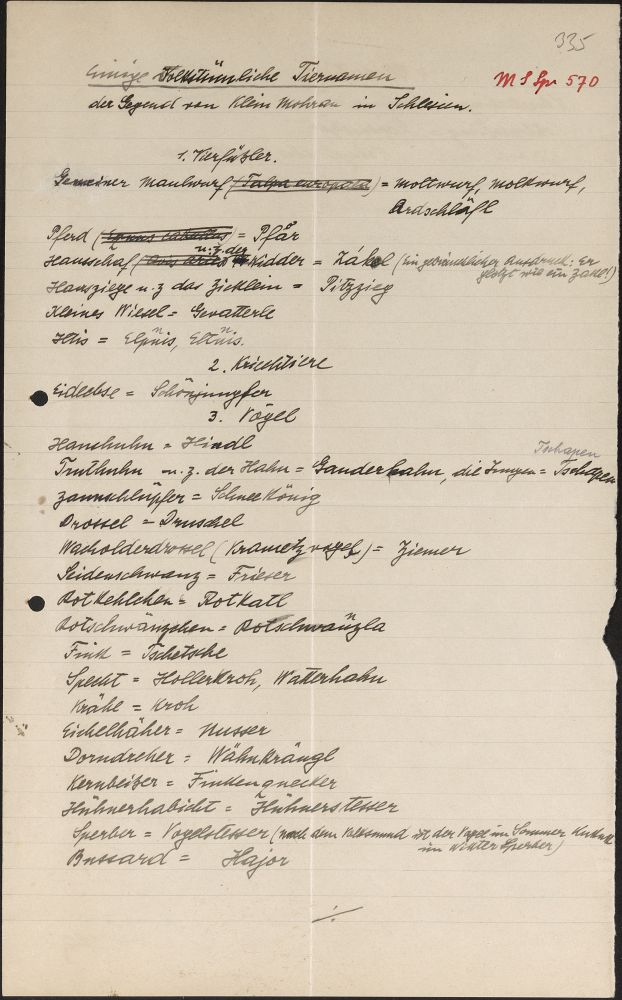 335
MS Spr 570
Einige Volkstümliche Tiernamen
der Gegend von Klein Mohrau in Schlesien.
1. Vierfüßler.
Gemeiner Maulwurf (Talpa europaea) = Moltwurf, Molkwurf,
Ardschläfl
Pferd (Equus caballus) = Pfår
Hausschaf (Ovis aries) u. z. der Widder = Zåkel (ein gebräuchlicher Ausdruck: Er
glotzt wie ein Zakel!)
Hausziege u. z. das Zicklein = Pitzzieg
Kleines Wiesel = Gevatterle
Iltis = Elpnis, Eltnis.
2. Kriechtiere
Eidechse = Schönjungfer
3. Vögel
Haushuhn = Hindl
Truthuhn u. z. der Hahn = Ganderhahn, die Jungen = Tschapen
Zaunschlüpfer = Schneekönig
Drossel = Druschel
Wacholderdrossel (Krametzvogel) = Ziemer
Seidenschwanz = Frieser
Rotkehlchen = Rotkatl
Rotschwänzchen = Rotschwanzla
Fink = Tschetsche
Specht = Hollerkroh, Watterhahn
Krähe = Kroh
Eichelhäher = Nusser
Dorndreher = Wåhnkrångl
Kernbeißer = Finkengnecker
Hühnerhabicht = Hühnerstesser
Sperber = Vogelstesser (nach dem Volksmund ist der Vogel im Sommer Kukuk
im Winter Sperber)
Bussard = Hajor